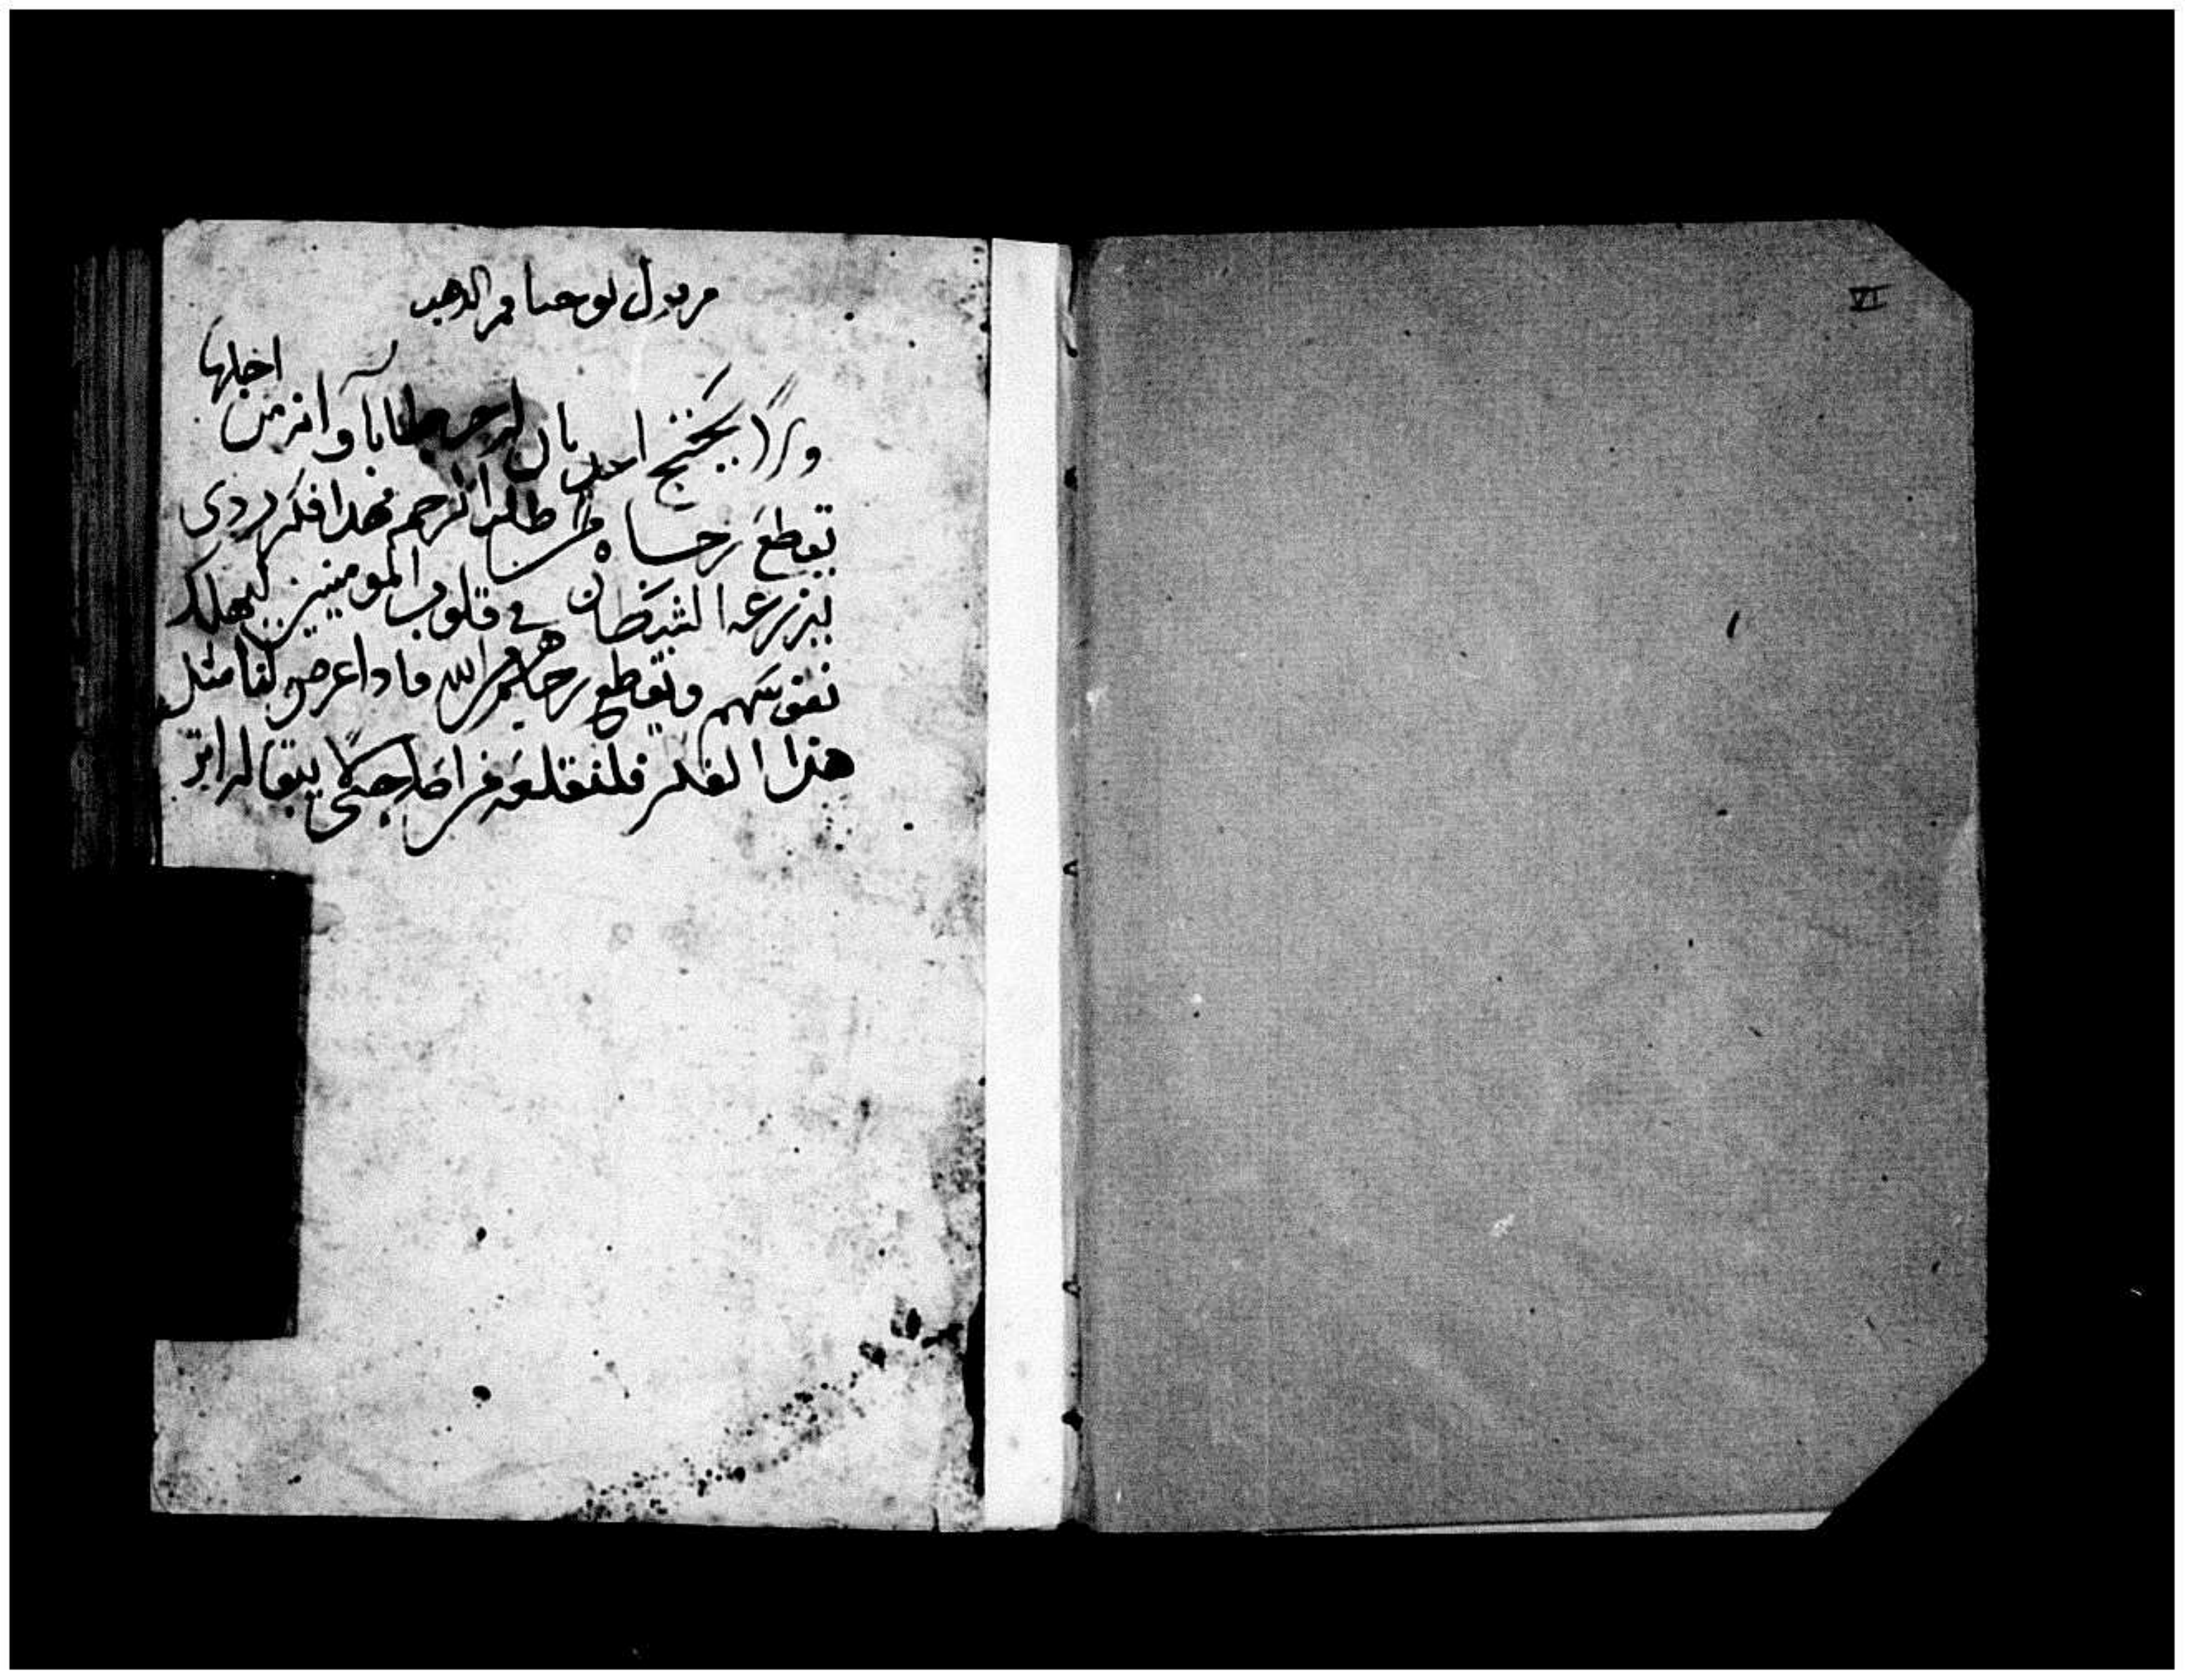 من قول يوحنا فم الدهب
ولا يحتج احد بان له خطايا وانه من اجلها
تقطع رجاه من طلب الرحمه فهدا فكر ردى
يزرعه الشيطان في قلوب المومنين ليهلك
نفوسهم ويقطع رجاهم من الله فادا عرض لنا مثل
هذا الفكر فلنقلعه من اصله حتى لا يبقا له اثر
VI